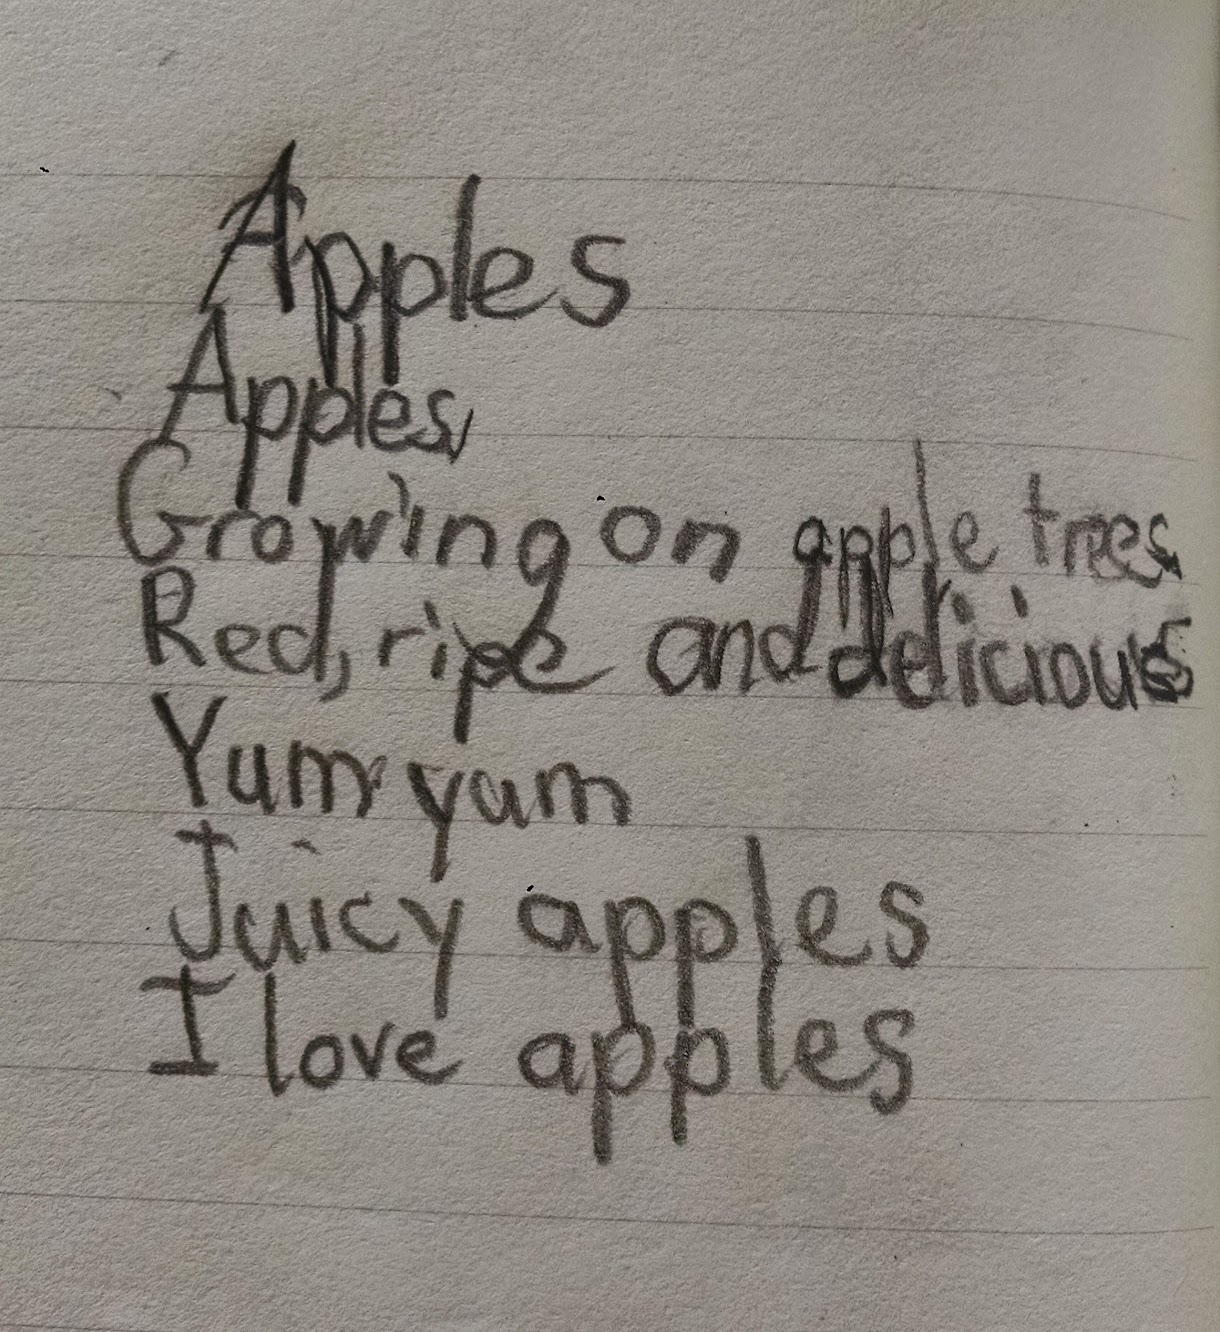 Apples
Apples,
Growing on apple trees.
Red, ripe and delicious
Yum yum
Juicy apples
I love apples